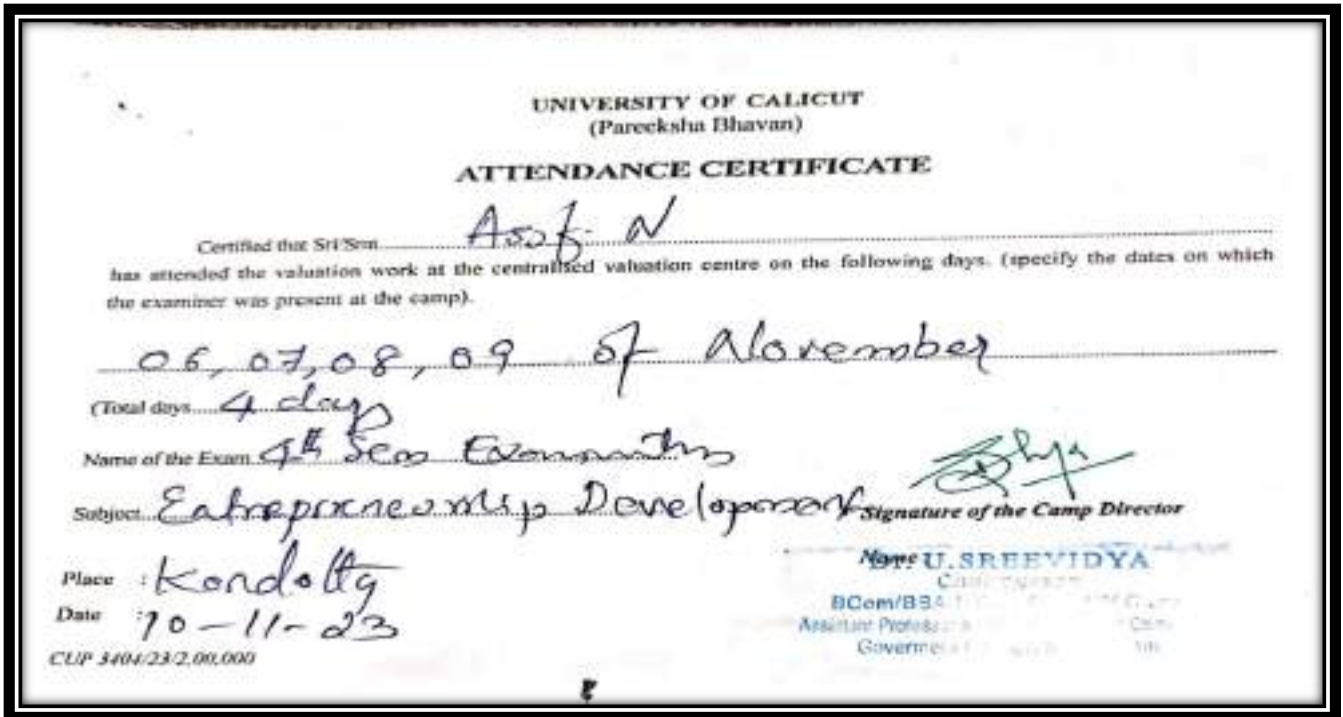 UNIVERSITY OF CALICUT
(Pareeksha Bhavan)
ATTENDANCE CERTIFICATE
Certified that Sri/Smt Asaf. N
has attended the valuation work at the centralised valuation centre on the following days. (specify the dates on which
the examiner was present at the camp).
06, 07, 08, 09 of November
(Total days 4 days
Name of the Exam 4th Sem Examination
Subject Entrepreneurship Development
Signature of the Camp Director
Place :
Date : 10-11-23
Name Dr. U. SREEVIDYA
BCom/BBA
Assistant
CUP 3404/23/2,00,000